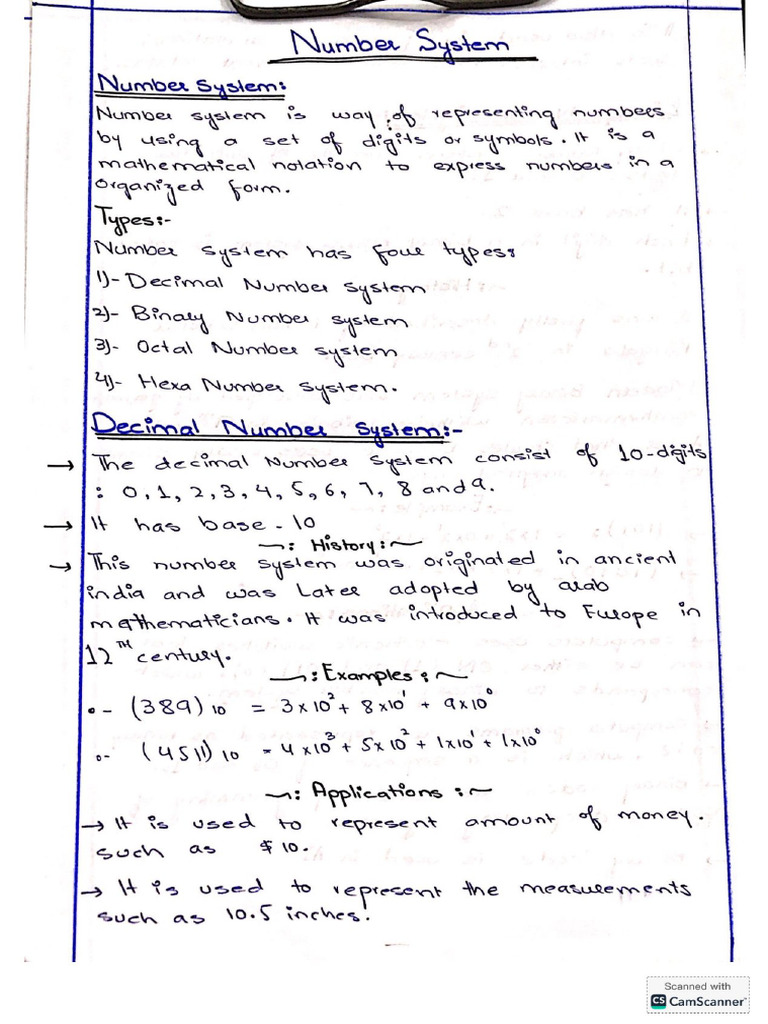 Number System
Number System:
Number system is way of representing numbers
by using a set of digits or symbols. It is a
mathematical notation to express numbers in a
Organized form.
Types:-
Number System has four types:
1)- Decimal Number System
2)- Binary Number System
3)- Octal Number System
4)- Hexa Number System.
Decimal Number System:-
→ The decimal Number System consist of 10-digits
: 0, 1, 2, 3, 4, 5, 6, 7, 8 and 9.
→ It has base - 10
~: History :~
→ This number system was originated in ancient
india and was Later adopted by arab
mathematicians. It was introduced to Europe in
12TH century.
~: Examples :~
•- (389)10 = 3x10² + 8x10¹ + 9x10⁰
o- (4511)10 = 4x10³ + 5x10² + 1x10¹ + 1x10⁰
~: Applications :~
→ It is used to represent amount of money.
such as $10.
→ It is used to represent the measurements
such as 10.5 inches.
Scanned with
CS CamScanner